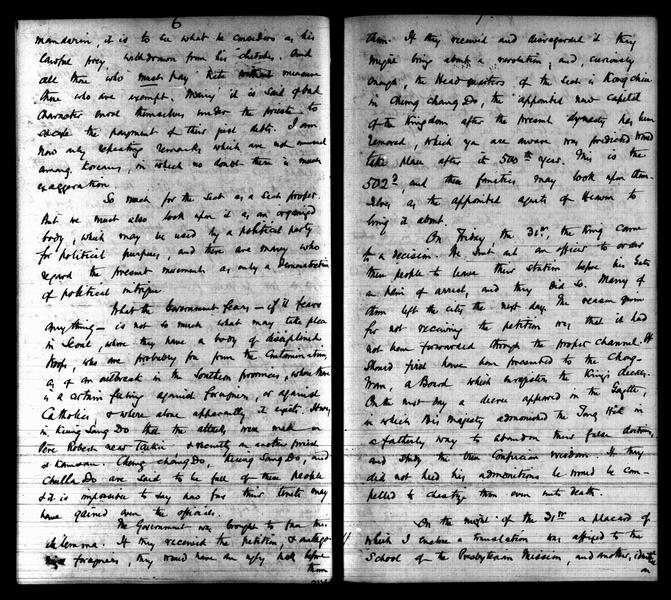 6
mandarin, it is to be what he considers as his
lawful prey, withdrawn from his clutches. And
all those who must pay hate without measure
those who are exempt. Many it is said of bad
character enrol themselves under the priests to
escape the payment of their just debts. I am
now only repeating remarks which are not unusual
among Koreans, in which no doubt there is much
exaggeration.
So much for the Sect as a Sect proper.
But we must also look upon it as an organized
body, which may be used by a political party
for political purposes, and there are many who
regard the present movement as only a demonstration
of political intrigue.
What the Government fears – if it fears
anything – is not so much what may take place
in Seoul, where they have a body of disciplined
troops, who are probably far from the contamination,
as of an outbreak in the Southern provinces, where there
is a certain feeling against foreigners, or against
Catholics & where alone apparently it exists. It was
in Kiung Sang Do that the attacks were made on
Père Robert near Taiku & recently on another priest
Chung Chang Do, Kiung Sang Do, and
Chulla Do are said to be full of these people
& it is impossible to say how far their tenets may
have gained over the officials.
The Government was brought to face the
dilemma. If they received the petition, &
foreigners, they would have an ugly before
them
7.
them. If they received and disregarded it they
might bring about a revolution; and, curiously
enough, the Head quarters of the Sect is Kong chiu
in Chung Chang Do, the appointed new Capital
of the Kingdom after the present dynasty has been
removed, which you are aware was predicted would
take place after its 500th year. This is the
502d, and these fanatics may look upon them-
selves as the appointed agents of Heaven to
bring it about.
On Friday, the 31st, the King came
to a decision. He sent out an officer to order
these people to leave their station before his Gate
on pain of arrest, and they did so. Many of
them left the city the next day. The reason given
for not receiving the petition was that it had
not been forwarded through the proper channel. It
should first have been presented to the Chong-
Won, a Board which registers the King's decrees.
On the next day a decree appeared in the Gazette,
in which His Majesty admonished the Tong Hak in
a fatherly way to abandon their false doctrine,
and study the true Confucian wisdom. If they
did not heed his admonitions he would be com-
pelled to chastize them even unto death.
On the night of the 31st a placard of
which I enclose a translation was affixed to the
School of the Presbyterian Mission, and another, identical
on